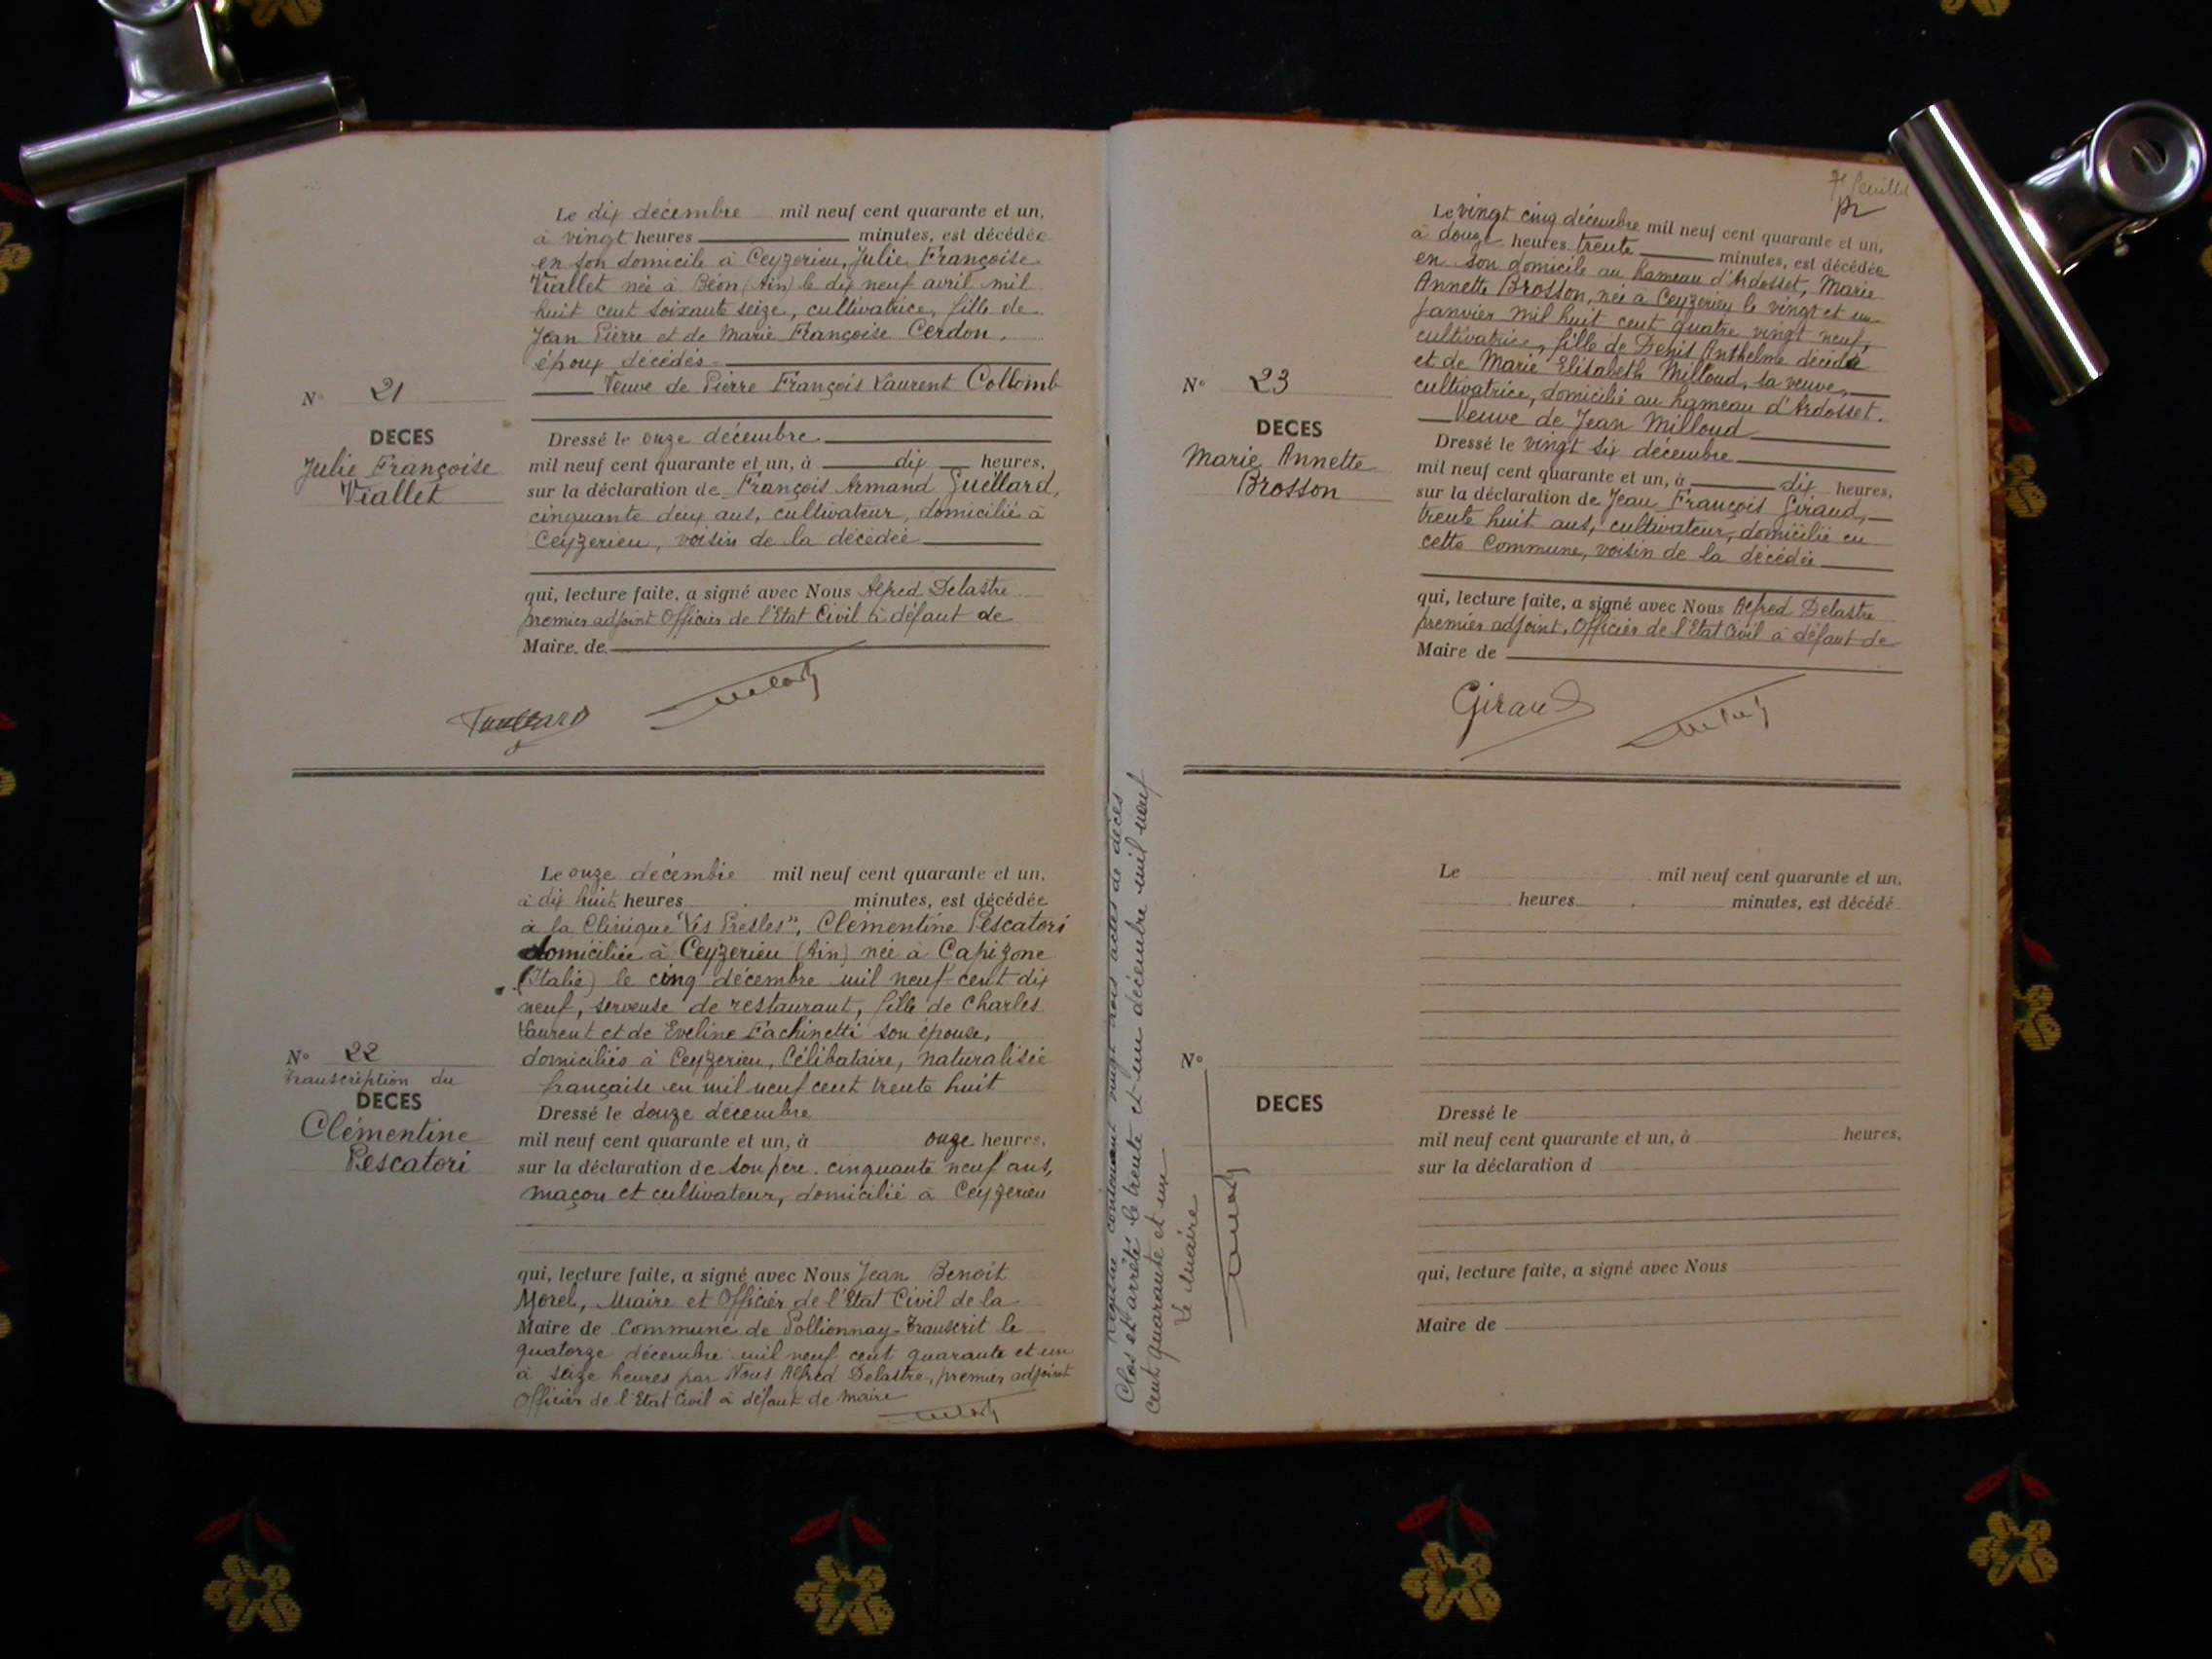 Le dix décembre mil neuf cent quarante et un,
à vingt heures minutes, est décédée
en son domicile à Ceyzerieu, Julie Françoise
Viallet née à Béon (Ain) le dix neuf avril mil
huit cent soixante seize, cultivatrice, fille de
Jean Pierre et de Marie Françoise Cerdon,
époux décédés
Veuve de Pierre François Laurent Collomb
N° 21
DECES
Julie Françoise
Viallet
Dressé le onze décembre
mil neuf cent quarante et un, à dix heures,
sur la déclaration de François Armand Guellard,
cinquante deux ans, cultivateur, domicilié à
Ceyzerieu, voisin de la décédée
qui, lecture faite, a signé avec Nous Alfred Delastre
premier adjoint Officier de l'Etat Civil à défaut de
Maire de
Le onze décembre mil neuf cent quarante et un,
à dix huit heures minutes, est décédée
à la Clinique "Les Presles", Clémentine Pescatori
domiciliée à Ceyzerieu (Ain) née à Capizone
(Italie) le cinq décembre mil neuf cent dix
neuf, serveuse de restaurant, fille de Charles
Laurent et de Eveline Fachinetti son épouse,
domiciliés à Ceyzerieu, Célibataire, naturalisée
française en mil neuf cent trente huit
N° 22
Transcription du
DECES
Clémentine
Pescatori
Dressé le douze décembre
mil neuf cent quarante et un, à onze heures,
sur la déclaration de son père. cinquante neuf ans,
maçon et cultivateur, domicilié à Ceyzerieu
qui, lecture faite, a signé avec Nous Jean Benoit
Morel, Maire et Officier de l'Etat Civil de la
Maire de Commune de Pollionnay. Transcrit le
quatorze décembre mil neuf cent quarante et un
à seize heures par Nous Alfred Delastre, premier adjoint
Officier de l'Etat Civil à défaut de maire
7e feuillet
Le vingt cinq décembre mil neuf cent quarante et un,
à douze heures trente minutes, est décédée
en son domicile au hameau d'Ardosset, Marie
Annette Brosson, née à Ceyzerieu le vingt et un
Janvier mil huit cent quatre vingt neuf,
cultivatrice, fille de Denis Anthelme décédé
et de Marie Elisabeth Milloud, sa veuve,
cultivatrice, domicilié au hameau d'Ardosset.
Veuve de Jean Milloud
N° 23
DECES
Marie Annette
Brosson
Dressé le vingt six décembre
mil neuf cent quarante et un, à dix heures,
sur la déclaration de Jean François Giraud,
trente huit ans, cultivateur, domicilié en
cette Commune, voisin de la décédée
qui, lecture faite, a signé avec Nous Alfred Delastre
premier adjoint, Officier de l'Etat Civil à défaut de
Maire de
Giraud
contenant vingt trois actes de décès
Clos et arrêté le trente et un décembre mil neuf
cent quarante et un
Le Maire
Le mil neuf cent quarante et un,
heures minutes, est décédé
N°
DECES
Dressé le
mil neuf cent quarante et un, à heures,
sur la déclaration d
qui, lecture faite, a signé avec Nous
Maire de